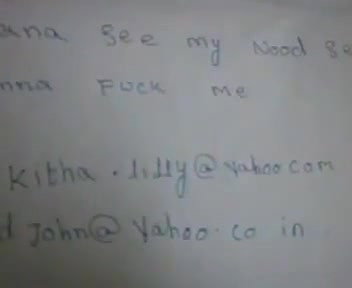 ana see my Nood se
nna FUCK me
Kitha.lilly@yahoo.com
d John@Yahoo.co in